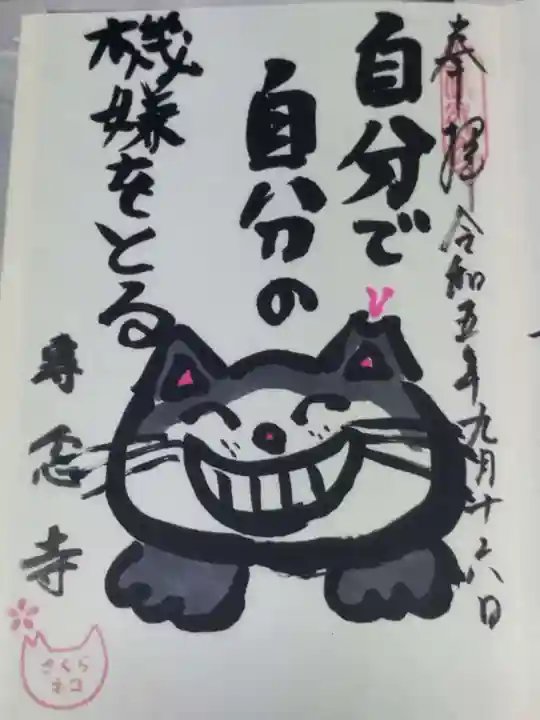 奉拝 令和五年九月十六日
自分で
自分の
機嫌をとる
専念寺
さくら
ネコ